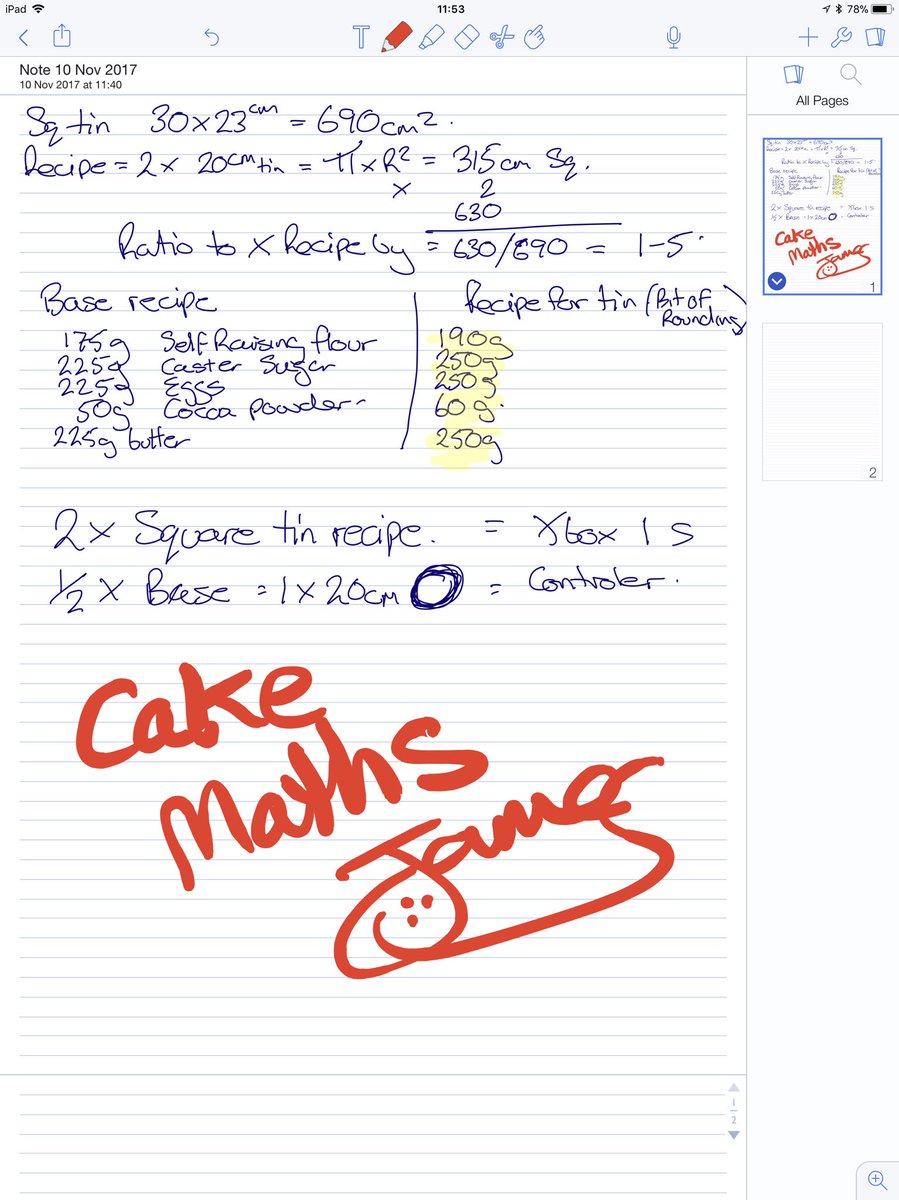 iPad 11:53 78%
T
Note 10 Nov 2017
10 Nov 2017 at 11:40
Sq tin 30x23cm = 690cm2.
Recipe = 2x 20cm tin = π x R² = 315cm Sq.
x 2
630
Ratio to x Recipe by = 630/690 = 1-5.
Base recipe
175g Self Raising flour
225g Caster Sugar
225g Eggs
50g Cocoa Powder
225g butter
Recipe for tin (Bit of Rounding)
190g
250g
250g
60g.
250g
2x Square tin recipe. = Xbox 1 S
1/2 x Base = 1x20cm O = Controler.
Cake
Maths
James
All Pages
1
2
1
2